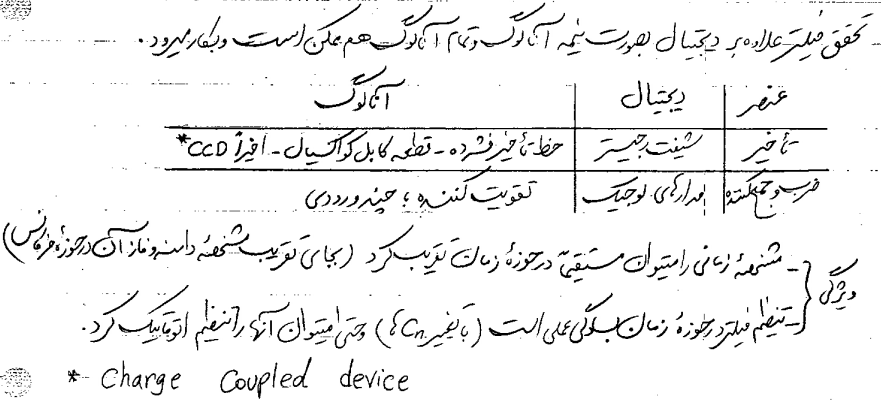 تحقق فیلتر علاوه بر دیجیتال بصورت نیمه آنالوگ و تمام آنالوگ هم ممکن است و بکار میرود.
عنصر | دیجیتال | آنالوگ
تأخیر | شیفت رجیستر | خط تأخیر فشرده - قطعه کابل کواکسیال - اخیراً CCD*
ضرب و جمع کننده | مدارهای لوجیک | تقویت کننده با چند ورودی
ویژگی { - مشخصهٔ زمانی را میتوان مستقیماً در حوزهٔ زمان تقریب کرد (بجای تقریب مشخصهٔ دامنه و فاز آن در حوزهٔ فرکانس)
- تنظیم فیلتر در حوزهٔ زمان بسادگی عملی است (با تغییر Cn ها) و حتی میتوان آنها را تنظیم اتوماتیک کرد.
* Charge Coupled device